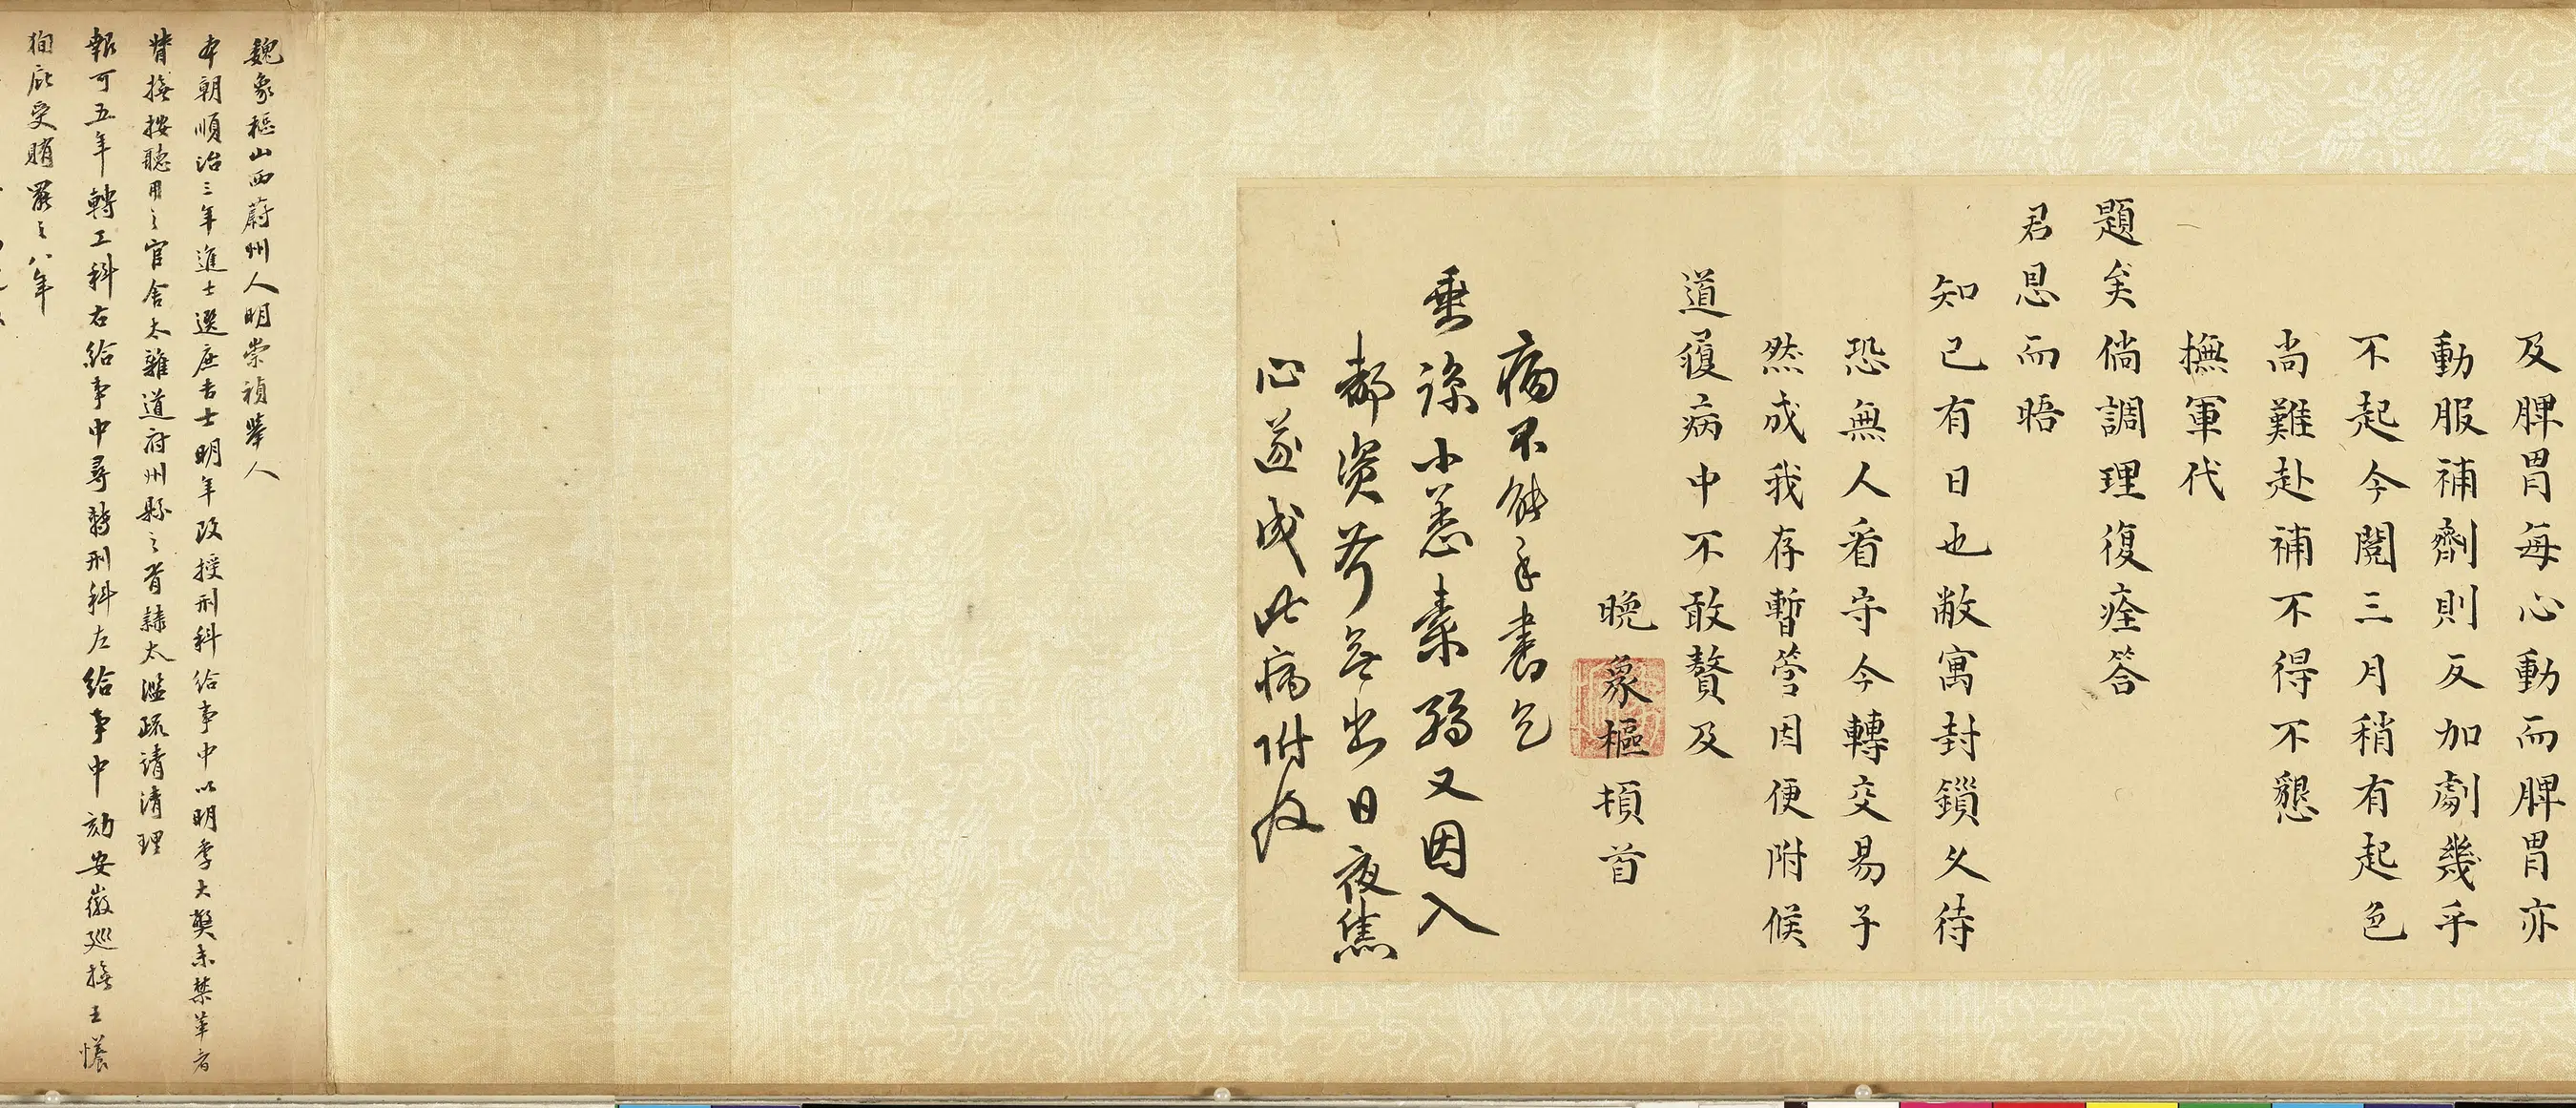 及脾胃每心動而脾胃亦
動服補劑則反加劇幾乎
不起今閱三月稍有起色
尚難赴補不得不懇
撫軍代
題矣倘調理復痊答
君恩而晤
知己有日也敝寓封鎖久待
恐無人看守今轉交易子
然成我存暫管因便附候
道履病中不敢贅及
晚象樞頓首
病不能手書乞
垂諒小恙素弱又因入
都資斧無出日夜焦
心遂成此病附及
魏象樞山西蔚州人明崇禎舉人
本朝順治三年進士選庶吉士明年改授刑科給事中以明季大弊未禁革者
督撫按聽用之官舍太雜道府州縣之胥隸太濫疏請清理
報可五年轉工科右給事中尋轉刑科左給事中劾安徽巡撫王懩
徇庇受賄罷之八年